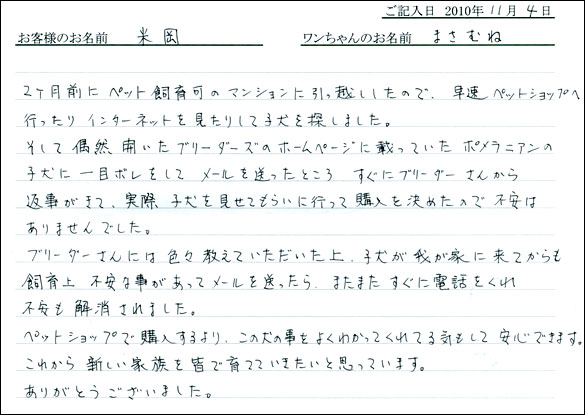 ご記入日 2010年 11月 4日
お客様のお名前 米岡 ワンちゃんのお名前 まさむね
2ヶ月前に ペット飼育可の マンションに引っ越ししたので、早速 ペットショップへ
行ったり インターネットを見たりして子犬を探しました。
そして 偶然 開いた ブリーダーズのホームページに載っていた ポメラニアンの
子犬に 一目ボレをして メールを送ったところ すぐにブリーダーさんから
返事がきて、実際 子犬を見せてもらいに行って購入を決めたので 不安は
ありませんでした。
ブリーダーさんには 色々教えていただいた上、子犬が我が家に来てからも
飼育上 不安な事があってメールを送ったら、またまた すぐに電話をくれ
不安も 解消されました。
ペットショップで購入するより、この犬の事をよくわかってくれてる気もして 安心できます。
これから 新しい家族を皆で育てていきたいと思っています。
ありがとうございました。